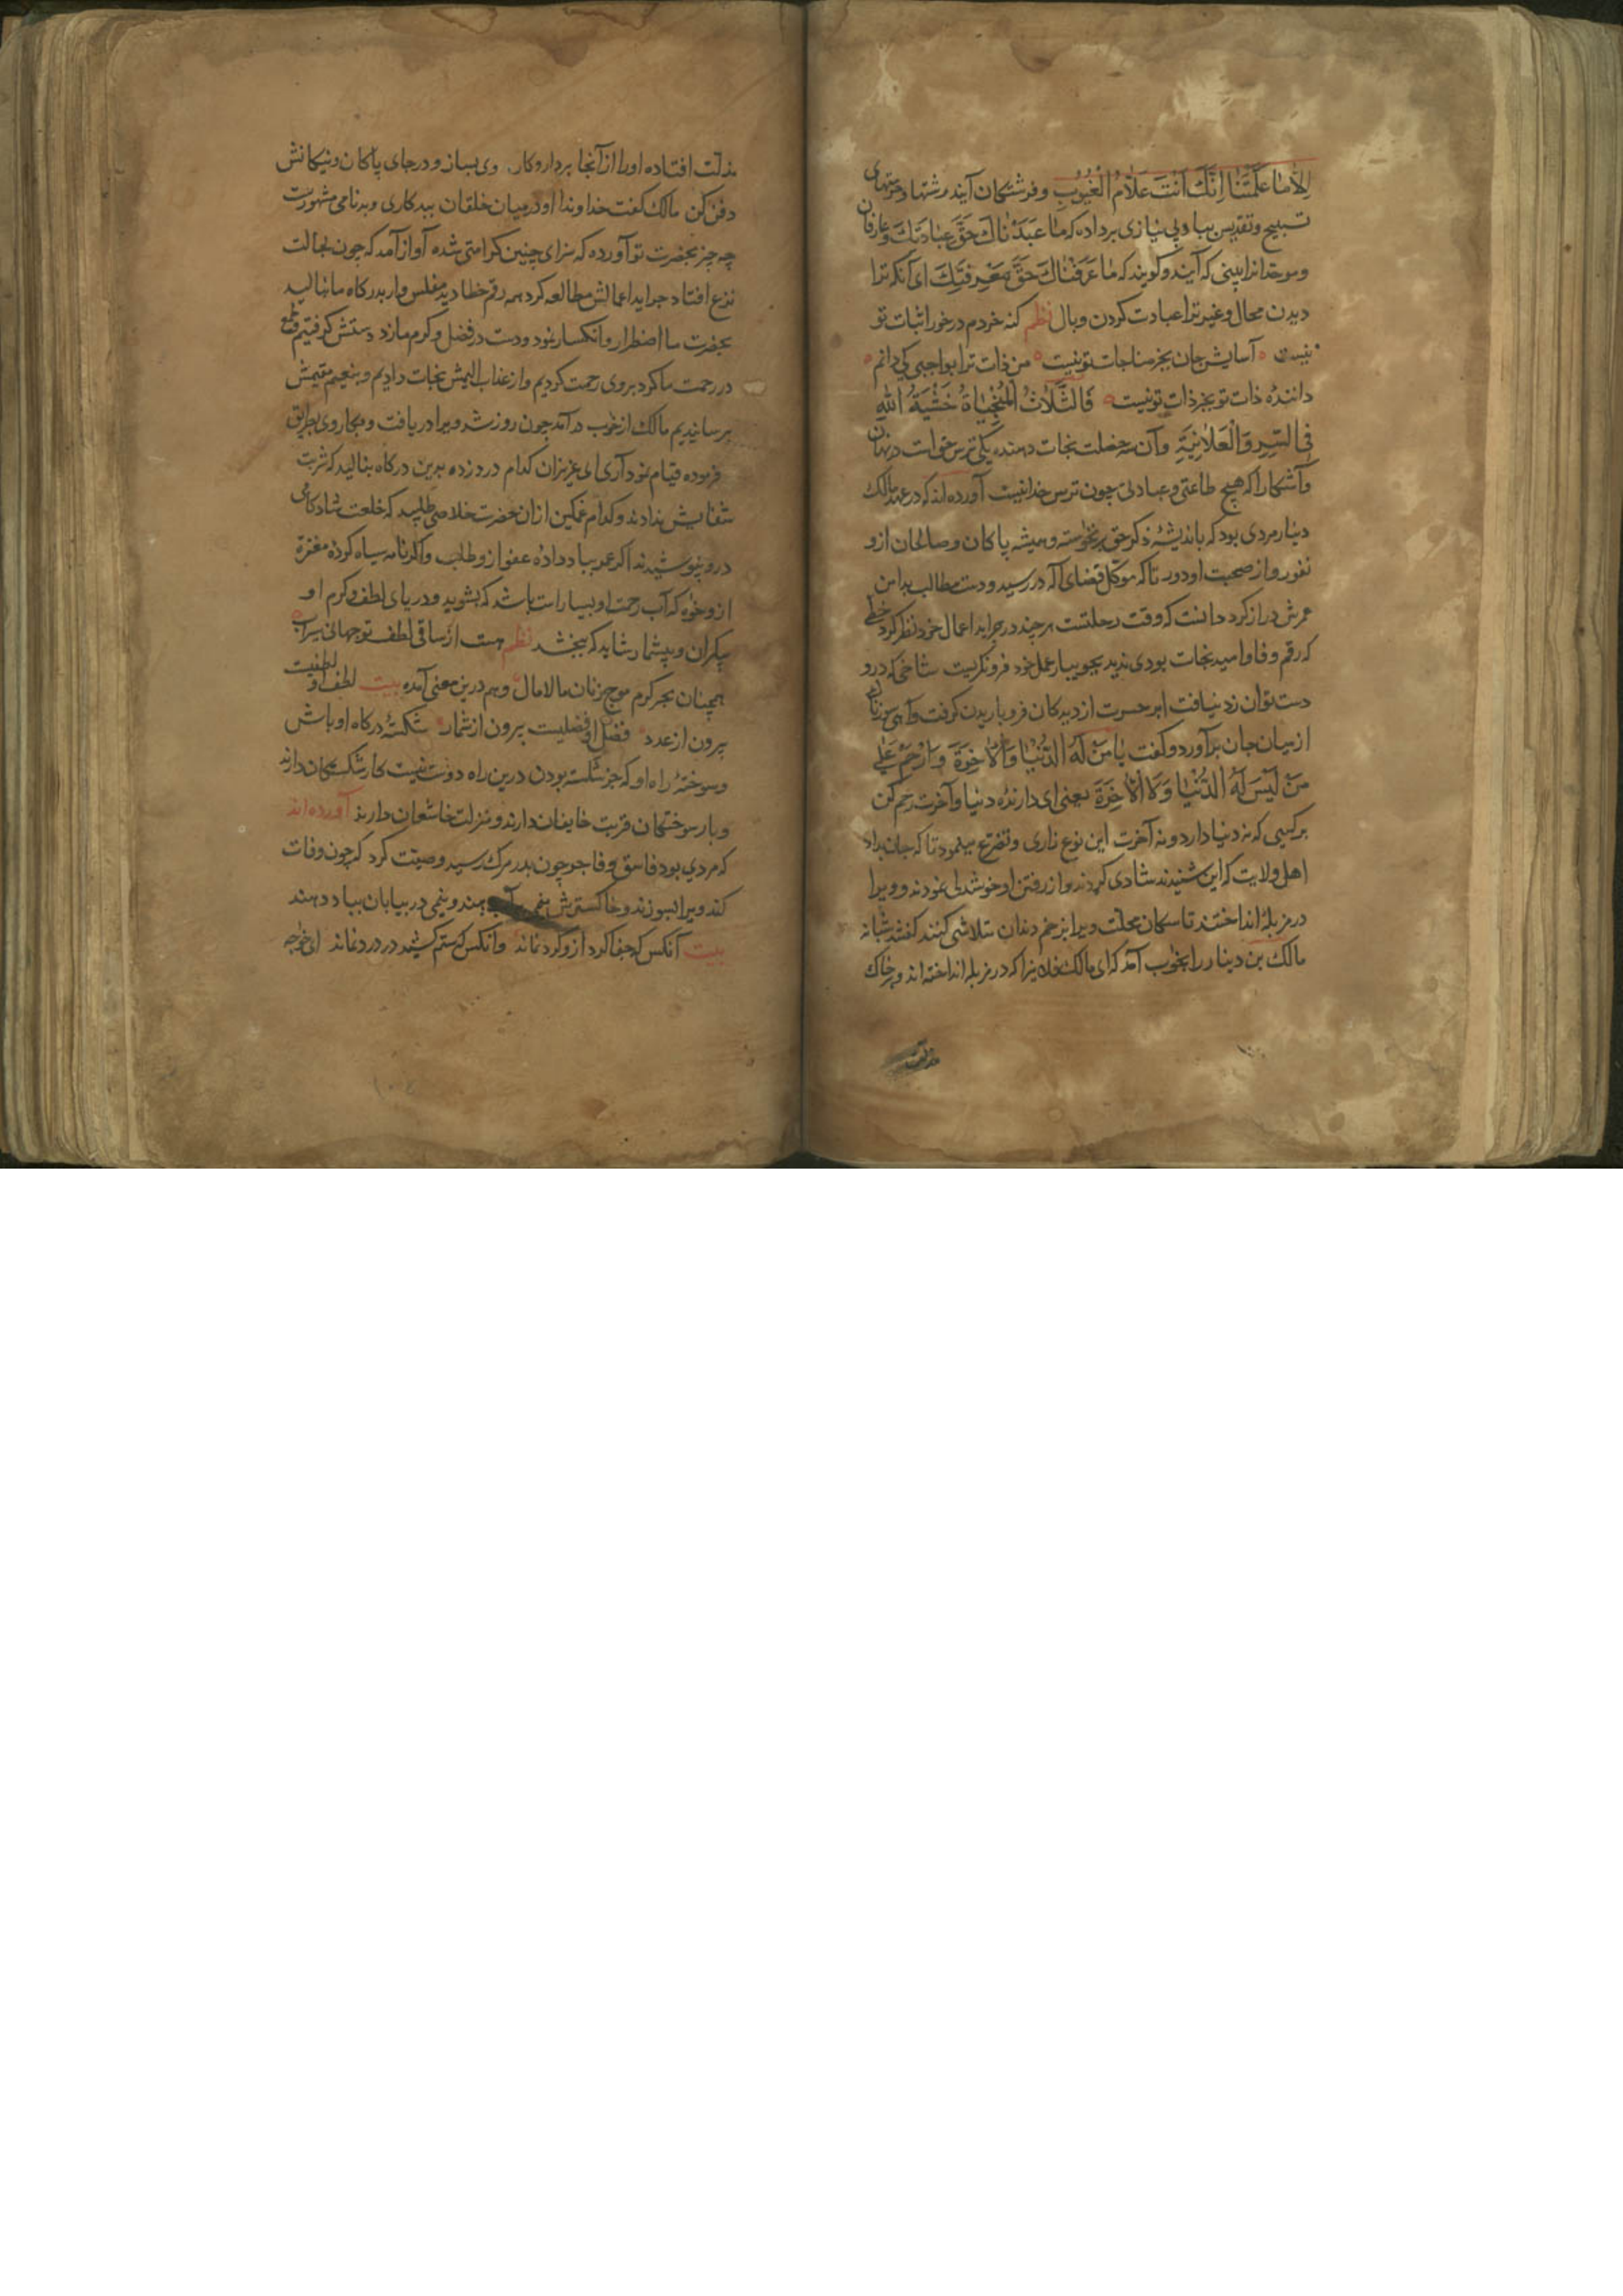 اِلَّا مَا عَلَّمْتَنَا اِنَّكَ اَنْتَ عَلَّامُ الْغُيُوبِ و فرشتكان آيند رشتها و خرقهای
تسبیح و تقدیس بباد بی نیازی برداده که مَا عَبَدْنَاكَ حَقَّ عِبَادَتِكَ و عارفان
و موحدانرا بینی که آیند و کویند که مَا عَرَفْنَاكَ حَقَّ مَعْرِفَتِكَ ای آنکه ترا
دیدن محال و غیر ترا عبادت کردن و بال نظم کنه خردم درخور اثبات تو
نیست آسایش جان بجز مناجات تو نیست من ذات ترا بواجبی کی دانم
دانندهٔ ذات تو بجز ذات تو نیست فَالثَّلَاثُ الْمُنْجِيَاةُ خَشْيَةُ اللهِ
فِي السِّرِّ وَالْعَلَانِيَةِ و آن سه خصلت نجات دهنده یکی ترس حق است در نهان
و آشکارا که هیچ طاعتی و عبادتی چون ترس خدا نیست آورده اند که در عهد مالک
دینار مردی بود که باندیشهٔ ذکر حق برنخواسته و همیشه پاکان و صالحان ازو
نفور و از صحبت او دور تا که موکل قضای اله در رسید و دست مطالب بدامن
عمرش دراز کرد دانست که وقت رحلتست هر چند در جراید اعمال خود نظر کرد خطی
که رقم وفا و امید نجات بودی ندید بجویبار عمل خود فرو نکریست شاخی که درو
دست توان زد نیافت ابر حسرت از دیدکان فرو باریدن کرفت و آهی سوزناک
از میان جان برآورد و کفت يَا مَنْ لَهُ الدُّنْيَا وَالْاٰخِرَةَ وَارْحَمْ عَلٰی
مَنْ لَيْسَ لَهُ الدُّنْيَا وَلَا الْاٰخِرَةَ یعنی ای دارندهٔ دنیا و آخرت رحم کن
بر کسی که نه دنیا دارد و نه آخرت این نوع زاری و تضرع مینمود تا که جان بداد
اهل ولایت که این شنیدند شادی کردند و از رفتن او خوشدلی نمودند و ویرا
در مزبله انداختند تا سکان محلت ویرا بزخم دندان متلاشی کنند کفتند شبانه
مالک بن دینار را بخواب آمد که ای مالک فلانیرا که در مزبله انداخته اند و بر خاک
مذلت
مذلت افتاده اورا از آنجا بردار و کار وی بساز و در جای پاکان و نیکانش
دفن کن مالک کفت خداوندا او در میان خلقان ببدکاری و بدنامی مشهورست
چه چیز بحضرت تو آورده که سزای چنین کرامتی شده آواز آمد که چون بحالت
نزع افتاد جراید اعمالش مطالعه کرد همه رقم خطا دید مفلس وار بدرکاه ما نالید
بحضرت ما اضطرار و انکسار نمود و دست در فضل و کرم ما زد دستش کرفتیم
در رحمت ما کرد بروی رحمت کردیم و از عذاب الیمش نجات دادیم و بنعیم مقیمش
برسانیدیم مالک از خواب درآمد چون روز شد ویرا دریافت و بکار وی بطریق
فرموده قیام نمود آری ای عزیزان کدام دردزده بدین درکاه بنالید که شربت
شفایش ندادند و کدام غمکین ازان حضرت خلاصی طلبید که خلعت شادکامی
درو نپوشیدند اکر عمر بباد دادهٔ عفو ازو طلب و اکر نامه سیاه کردهٔ مغفرة
ازو خواه که آب رحمت او بسیار است باشد که بشوید و دریای لطف و کرم او
بیکران و بیشمار شاید که ببخشد نظم هست از ساقی لطف تو جهانی سیراب
همچنان بحر کرم موج زنان مالامال و هم درین معنی آمده بیت لطف او لطفیست
بیرون از عدد فضل او فضلیست بیرون از شمار شکستهٔ درکاه او باش
و سوختهٔ راه او که جز شکسته بودن درین راه دوست نیست کار شکستکان دارند
و بار سوختکان قربت خایفان دارند و منزلت خاشعان دارند آورده اند
که مردی بود فاسق و فاجر چون بدر مرک رسید وصیت کرد که چون وفات
کند ویرا بسوزند و خاکسترش نیمی بآب دهند و نیمی در بیابان بباد دهند
بیت آنکس که جفا کرد ازو کرد نماند وآنکس که ستم کشید در درد نماند ای خواجه